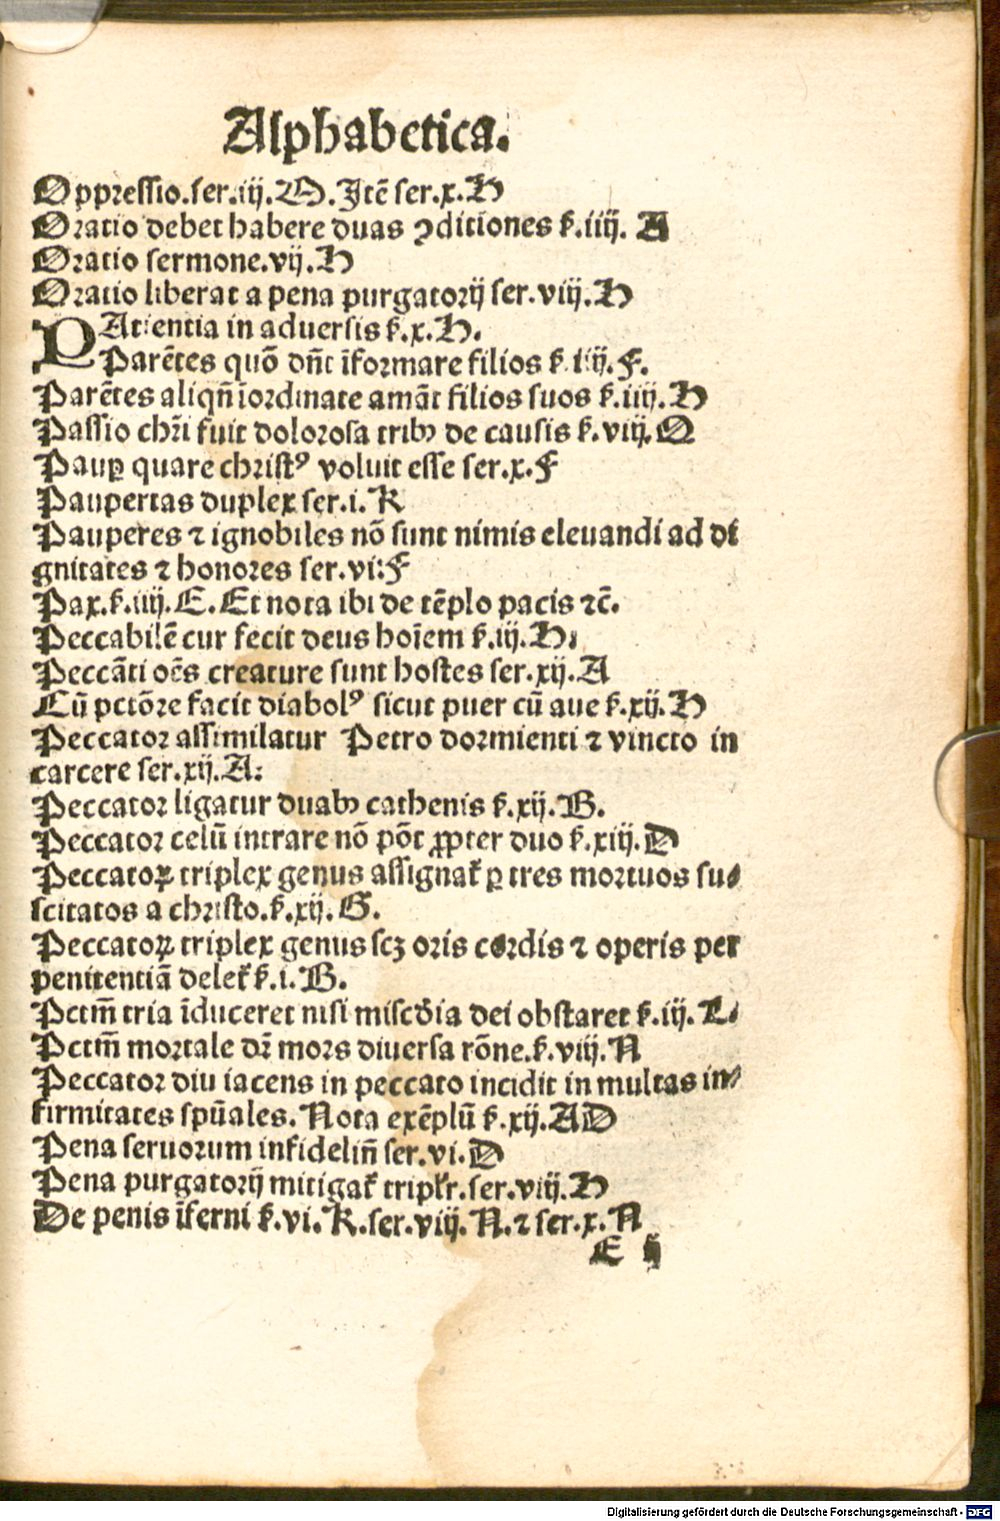 Alphabetica.
Oppressio.ser.iij.O.Itē ser.x.H
Oratio debet habere duas ꝯditiones ẜ.iiij. A
Oratio sermone.vij.H
Oratio liberat a pena purgatorij ser.viij.H
PAtientia in aduersis ẜ.x.H.
Parētes quō dn̄t īformare filios ẜ.iiij.F.
Parētes aliqn̄ iordinate amāt filios suos ẜ.iiij.H
Passio chr̄i fuit dolorosa tribꝰ de causis ẜ.viij.Q
Pauꝑ quare christꝰ voluit esse ser.x.F
Paupertas duplex ser.i.K
Pauperes ⁊ ignobiles nō sunt nimis eleuandi ad di
gnitates ⁊ honores ser.vi:F
Pax.ẜ.iiij.E.Et nota ibi de tēplo pacis ⁊c̄.
Peccabilē cur fecit deus hoīem ẜ.iij.H:
Peccāti oēs creature sunt hostes ser.xij.A
Cū pctōre facit diabolꝰ sicut puer cū aue ẜ.xij.H
Peccator assimilatur Petro dormienti ⁊ vincto in
carcere ser.xij.A:
Peccator ligatur duabꝰ cathenis ẜ.xij.B.
Peccator celū intrare nō pōt ꝓpter duo ẜ.xiij.D
Peccatoꝝ triplex genus assignat̄ ꝑ tres mortuos su⸗
scitatos a christo.ẜ.xij.G.
Peccatoꝝ triplex genus scꝫ oris cordis ⁊ operis per
penitentiā delet̄ ẜ.i.B.
Pctm̄ tria īduceret nisi misc̄dia dei obstaret ẜ.iij.L.
Pctm̄ mortale dr̄ mors diuersa rōne.ẜ.viij.N
Peccator diu iacens in peccato incidit in multas in⸗
firmitates spūales. Nota exēplū ẜ.xij.AD
Pena seruorum infideliū ser.vi.D
Pena purgatorij mitigat̄ triplr̄.ser.viij.H
De penis īferni ẜ.vi.K.ser.viij.N.⁊ ser.x.N
E ij
Digitalisierung gefördert durch die Deutsche Forschungsgemeinschaft - DFG